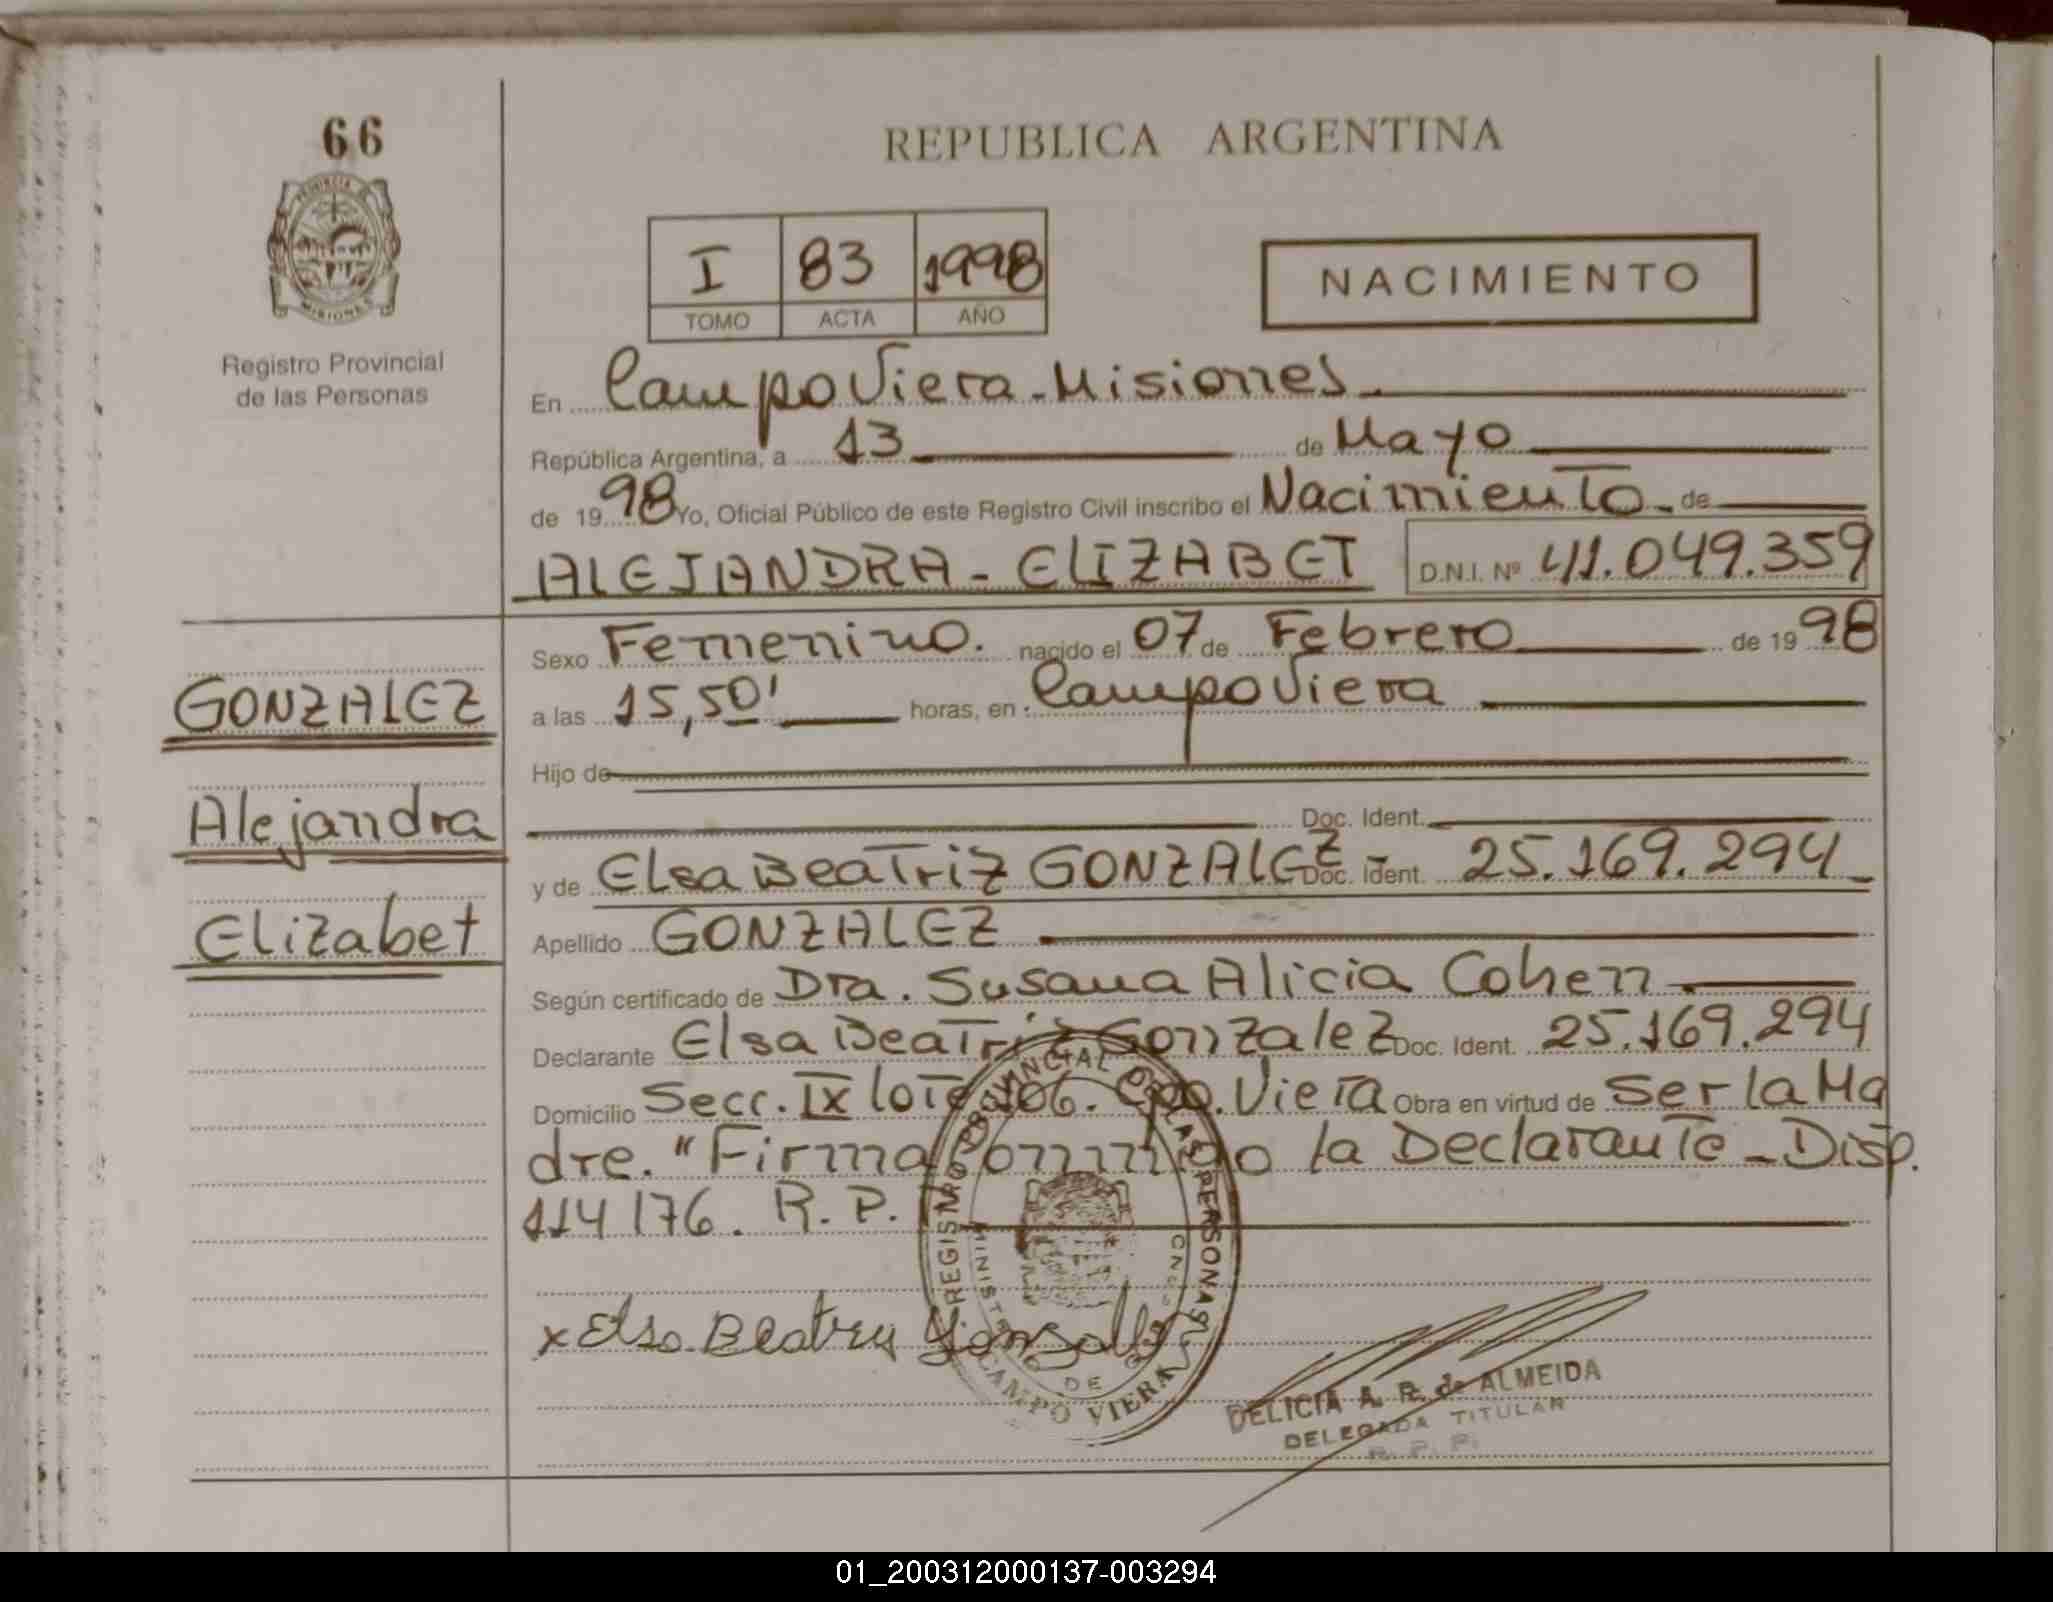 66
PROVINCIA DE
MISIONES
Registro Provincial
de las Personas
GONZALEZ
Alejandra
Elizabet
REPUBLICA ARGENTINA
I 83 1998
TOMO ACTA AÑO
NACIMIENTO
En Campo Viera - Misiones.
República Argentina, a 13 de Mayo
de 1998 Yo, Oficial Público de este Registro Civil inscribo el Nacimiento - de
ALEJANDRA - ELIZABET D.N.I. Nº 41.049.359
Sexo Femenino. nacido el 07 de Febrero de 1998
a las 15,50' horas, en: Campo Viera
Hijo de
Doc. Ident.
y de Elsa Beatriz GONZALEZ - Doc. Ident. 25.169.294
Apellido GONZALEZ
Según certificado de Dra. Susana Alicia Cohen
Declarante Elsa Beatriz Gonzalez Doc. Ident. 25.169.294
Domicilio Secc. IX lote 106. Cpo. Viera Obra en virtud de ser la Ma
dre. "Firma conmigo la Declarante - Disp.
114/76. R. P.
x Elsa Beatriz Gonzalez
REGISTRO PROVINCIAL DE LAS PERSONAS
CAMPO VIERA
DELICIA A. R. de ALMEIDA
DELEGADA TITULAR
R. P. P.
01_200312000137-003294